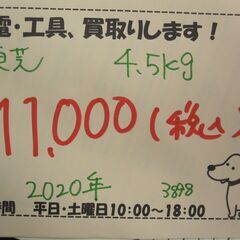 電・工具、買取りします！
東芝 4.5kg
11,000(税込)
2020年 3898
時間 平日・土曜日10:00～18:00